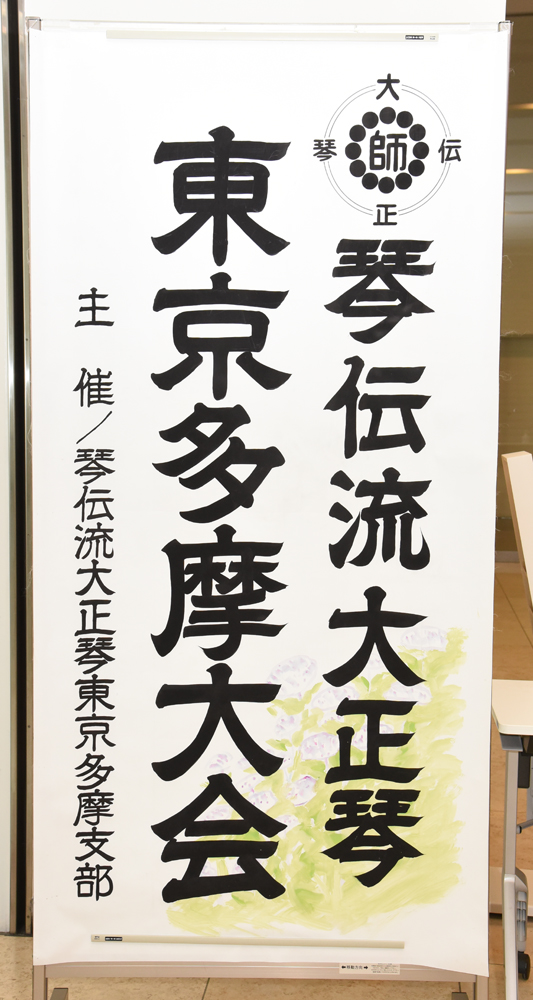 大
琴 師 伝
正
琴伝流大正琴
東京多摩大会
主催/琴伝流大正琴東京多摩支部